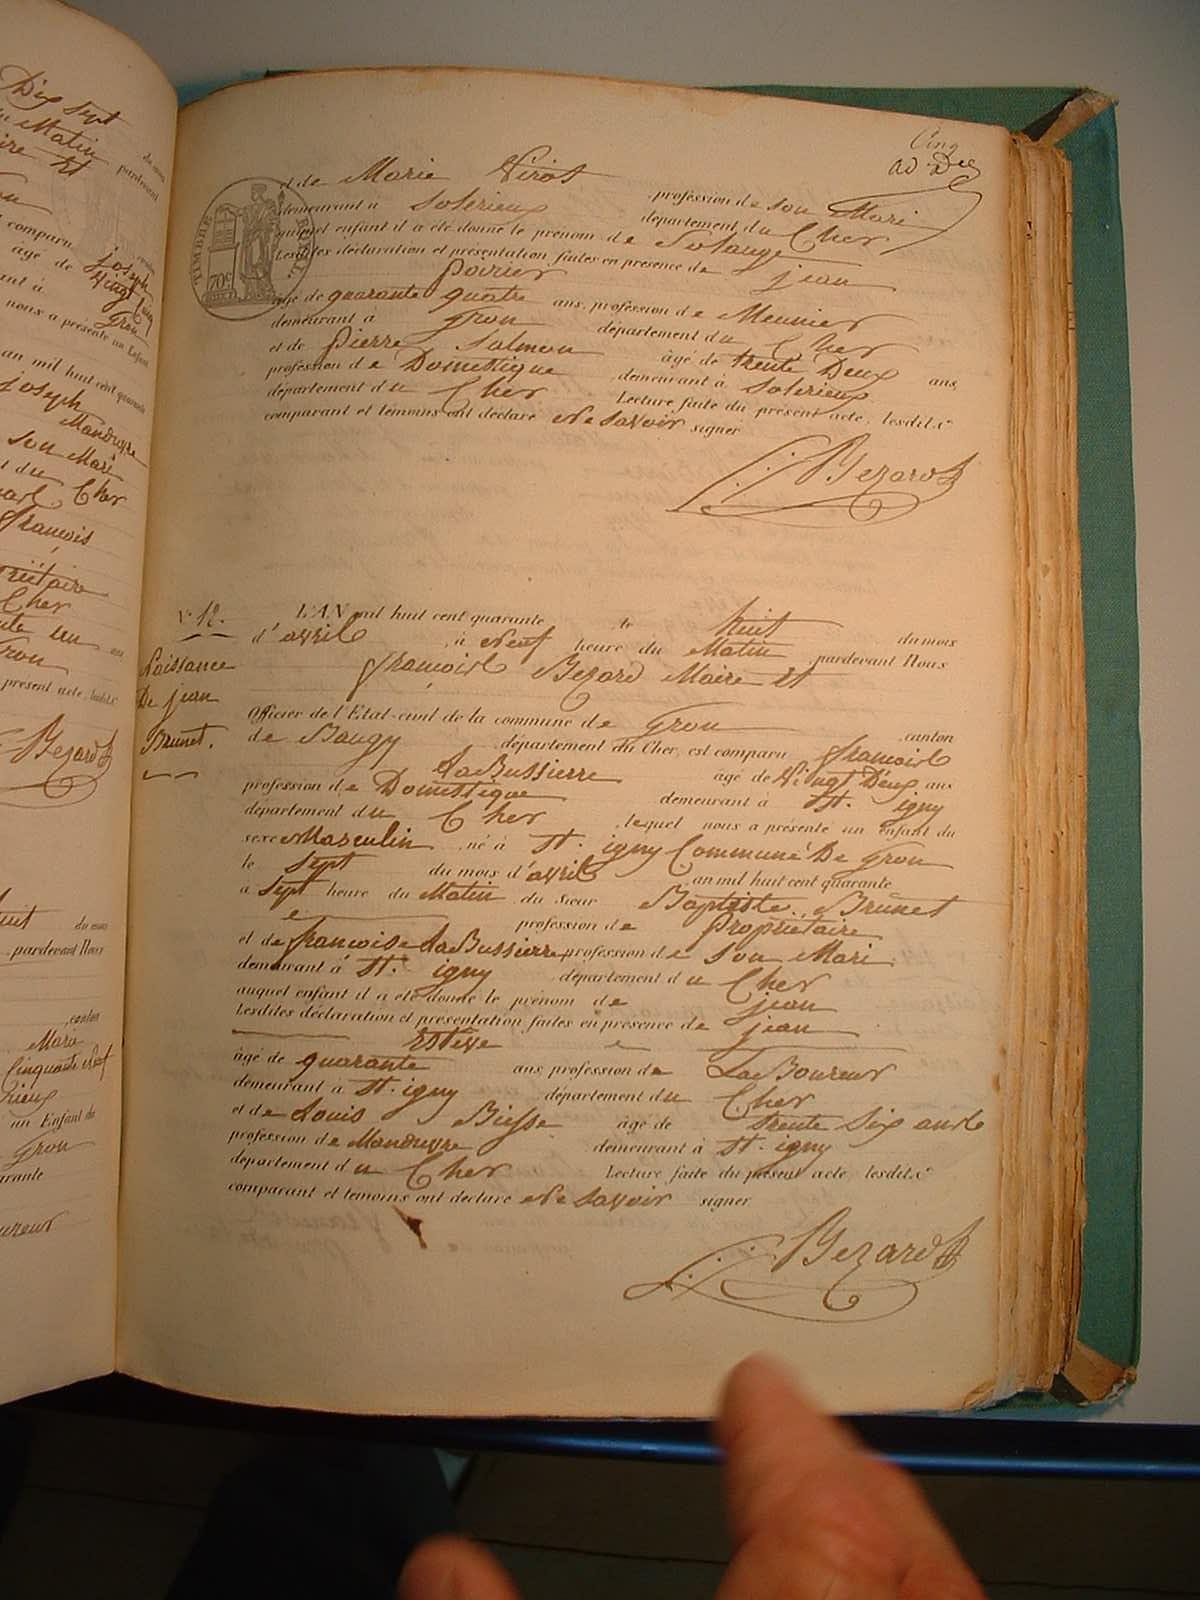 Dix Sept
du mois
Matin
pardevant
aire Et
comparu
joseph
age de Vingt Cinq
ant à Gron
nous a présenté un Enfant
an mil huit cent quarante
joseph
Manœuvre
son Mari
du Cher
francois
Cher
Gron
présent acte, lesdit.s
Bezard
du mois
pardevant Nous
canton
Marie
Cinquante Neuf
un Enfant du
Gron
Cinq
TIMBRE ROYAL
70c
et de Marie Virot profession de son Mari
demeurant à Solérieux département du Cher
auquel enfant il a été donné le prénom de Solange
Lesdites déclaration et présentation faites en présence de jean
Poirier
âgé de quarante quatre ans, profession de Meunier
demeurant à Gron département du Cher
et de Pierre Salmon âgé de trente Deux ans,
profession de Domestique demeurant à Solerieux
département du Cher Lecture faite du présent acte, lesdit.s
comparant et témoins ont déclaré Ne Savoir signer
Bezard
No 12. L'AN mil huit cent quarante le huit du mois
d'avril à Neuf heure du Matin pardevant Nous
Naissance francois Bezard Maire Et
De jean
Officier de l'État-civil de la commune de Gron canton
Brunet. de Baugy département du Cher, est comparu francois
LaBussierre âgé de Vingt Deux ans
profession de Domestique demeurant à St. igny
département du Cher lequel nous a présenté un enfant du
sexe Masculin né à St. igny Commune De Gron
le Sept du mois d'avril an mil huit cent quarante
à Sept heure du Matin du Sieur Baptiste Brunet
profession de Propriëtaire
et de francoise LaBussierre profession de son Mari
demeurant à St. igny département du Cher
auquel enfant il a été donné le prénom de jean
Lesdites déclaration et présentation faites en présence de jean
Estève
âgé de quarante ans, profession de LaBoureur
demeurant à St. igny département du Cher
et de Louis Biesse âgé de trente Six ans
profession de Manœuvre demeurant à St. igny
département du Cher Lecture faite du présent acte, lesdit.s
comparant et témoins ont déclaré Ne Savoir signer
Bezard